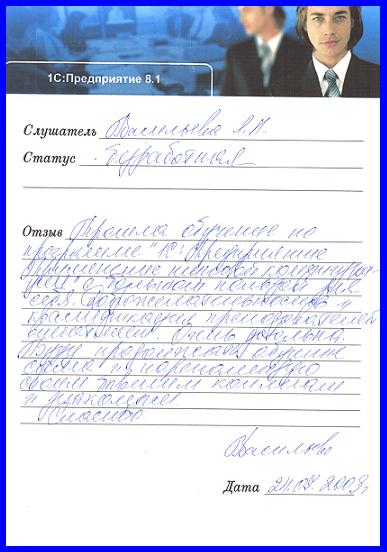 1С:Предприятие 8.1
Слушатель Васильева Л.Н.
Статус безработная
Отзыв Прошла обучение по
программе "1С: Предприятие
Управление торговой
с большой пользой для
себя. Доброжелательность и
квалификация преподавателей
Очень довольна.
Буду продолжать обучение
сама и порекомендую
своим коллегам
и знакомым
Спасибо.
Васильева
Дата 24.07.2009г